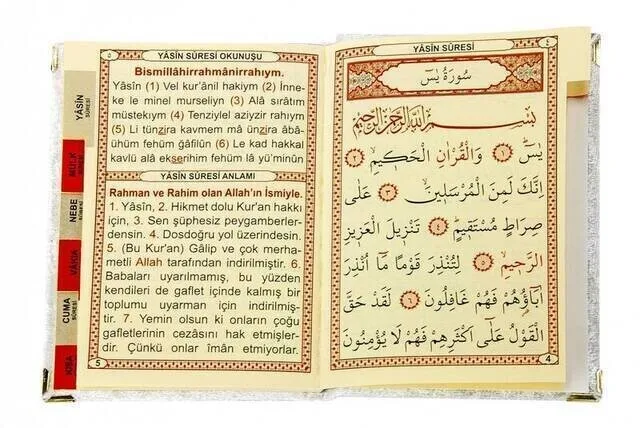 ٥
YÂSÎN SÛRESİ OKUNUŞU
Bismillâhirrahmânirrahıym.
Yâsîn (1) Vel kur'ânil hakiym (2) İnne-
ke le minel murseliyn (3) Alâ sırâtım
müstekıym (4) Tenziylel aziyzir rahıym
(5) Li tünzira kavmem mâ ünzira âbâ-
ühüm fehüm ğâfilûn (6) Le kad hakkal
kavlü alâ ekserihim fehüm lâ yü'minûn
YÂSÎN SÛRESİ ANLAMI
Rahman ve Rahim olan Allah'ın İsmiyle.
1. Yâsîn, 2. Hikmet dolu Kur'an hakkı
için, 3. Sen şüphesiz peygamberler-
densin. 4. Dosdoğru yol üzerindesin.
5. (Bu Kur'an) Gâlip ve çok merha-
metli Allah tarafından indirilmiştir. 6.
Babaları uyarılmamış, bu yüzden
kendileri de gaflet içinde kalmış bir
toplumu uyarman için indirilmiş-
tir. 7. Yemin olsun ki onların çoğu
gafletlerinin cezâsını hak etmişler-
dir. Çünkü onlar îmân etmiyorlar.
5
YÂSÎN
SÛRESİ
MÜLK
SÛRESİ
NEBE
SÛRESİ
VÂKIA
CUMA
SÛRESİ
KISA
YÂSÎN SÛRESİ
٤
سُورَةُ يٰسٓ
بِسْمِ اللّٰهِ الرَّحْمٰنِ الرَّحِيمِ
يٰسٓ ﴿١﴾ وَالْقُرْاٰنِ الْحَكِيمِ ﴿٢﴾
اِنَّكَ لَمِنَ الْمُرْسَلِينَ ﴿٣﴾ عَلٰى
صِرَاطٍ مُسْتَقِيمٍ ﴿٤﴾ تَنْزِيلَ الْعَزِيزِ
الرَّحِيمِ ﴿٥﴾ لِتُنْذِرَ قَوْمًا مَٓا اُنْذِرَ
اٰبَٓاؤُهُمْ فَهُمْ غَافِلُونَ ﴿٦﴾ لَقَدْ حَقَّ
الْقَوْلُ عَلٰٓى اَكْثَرِهِمْ فَهُمْ لَا يُؤْمِنُونَ
4